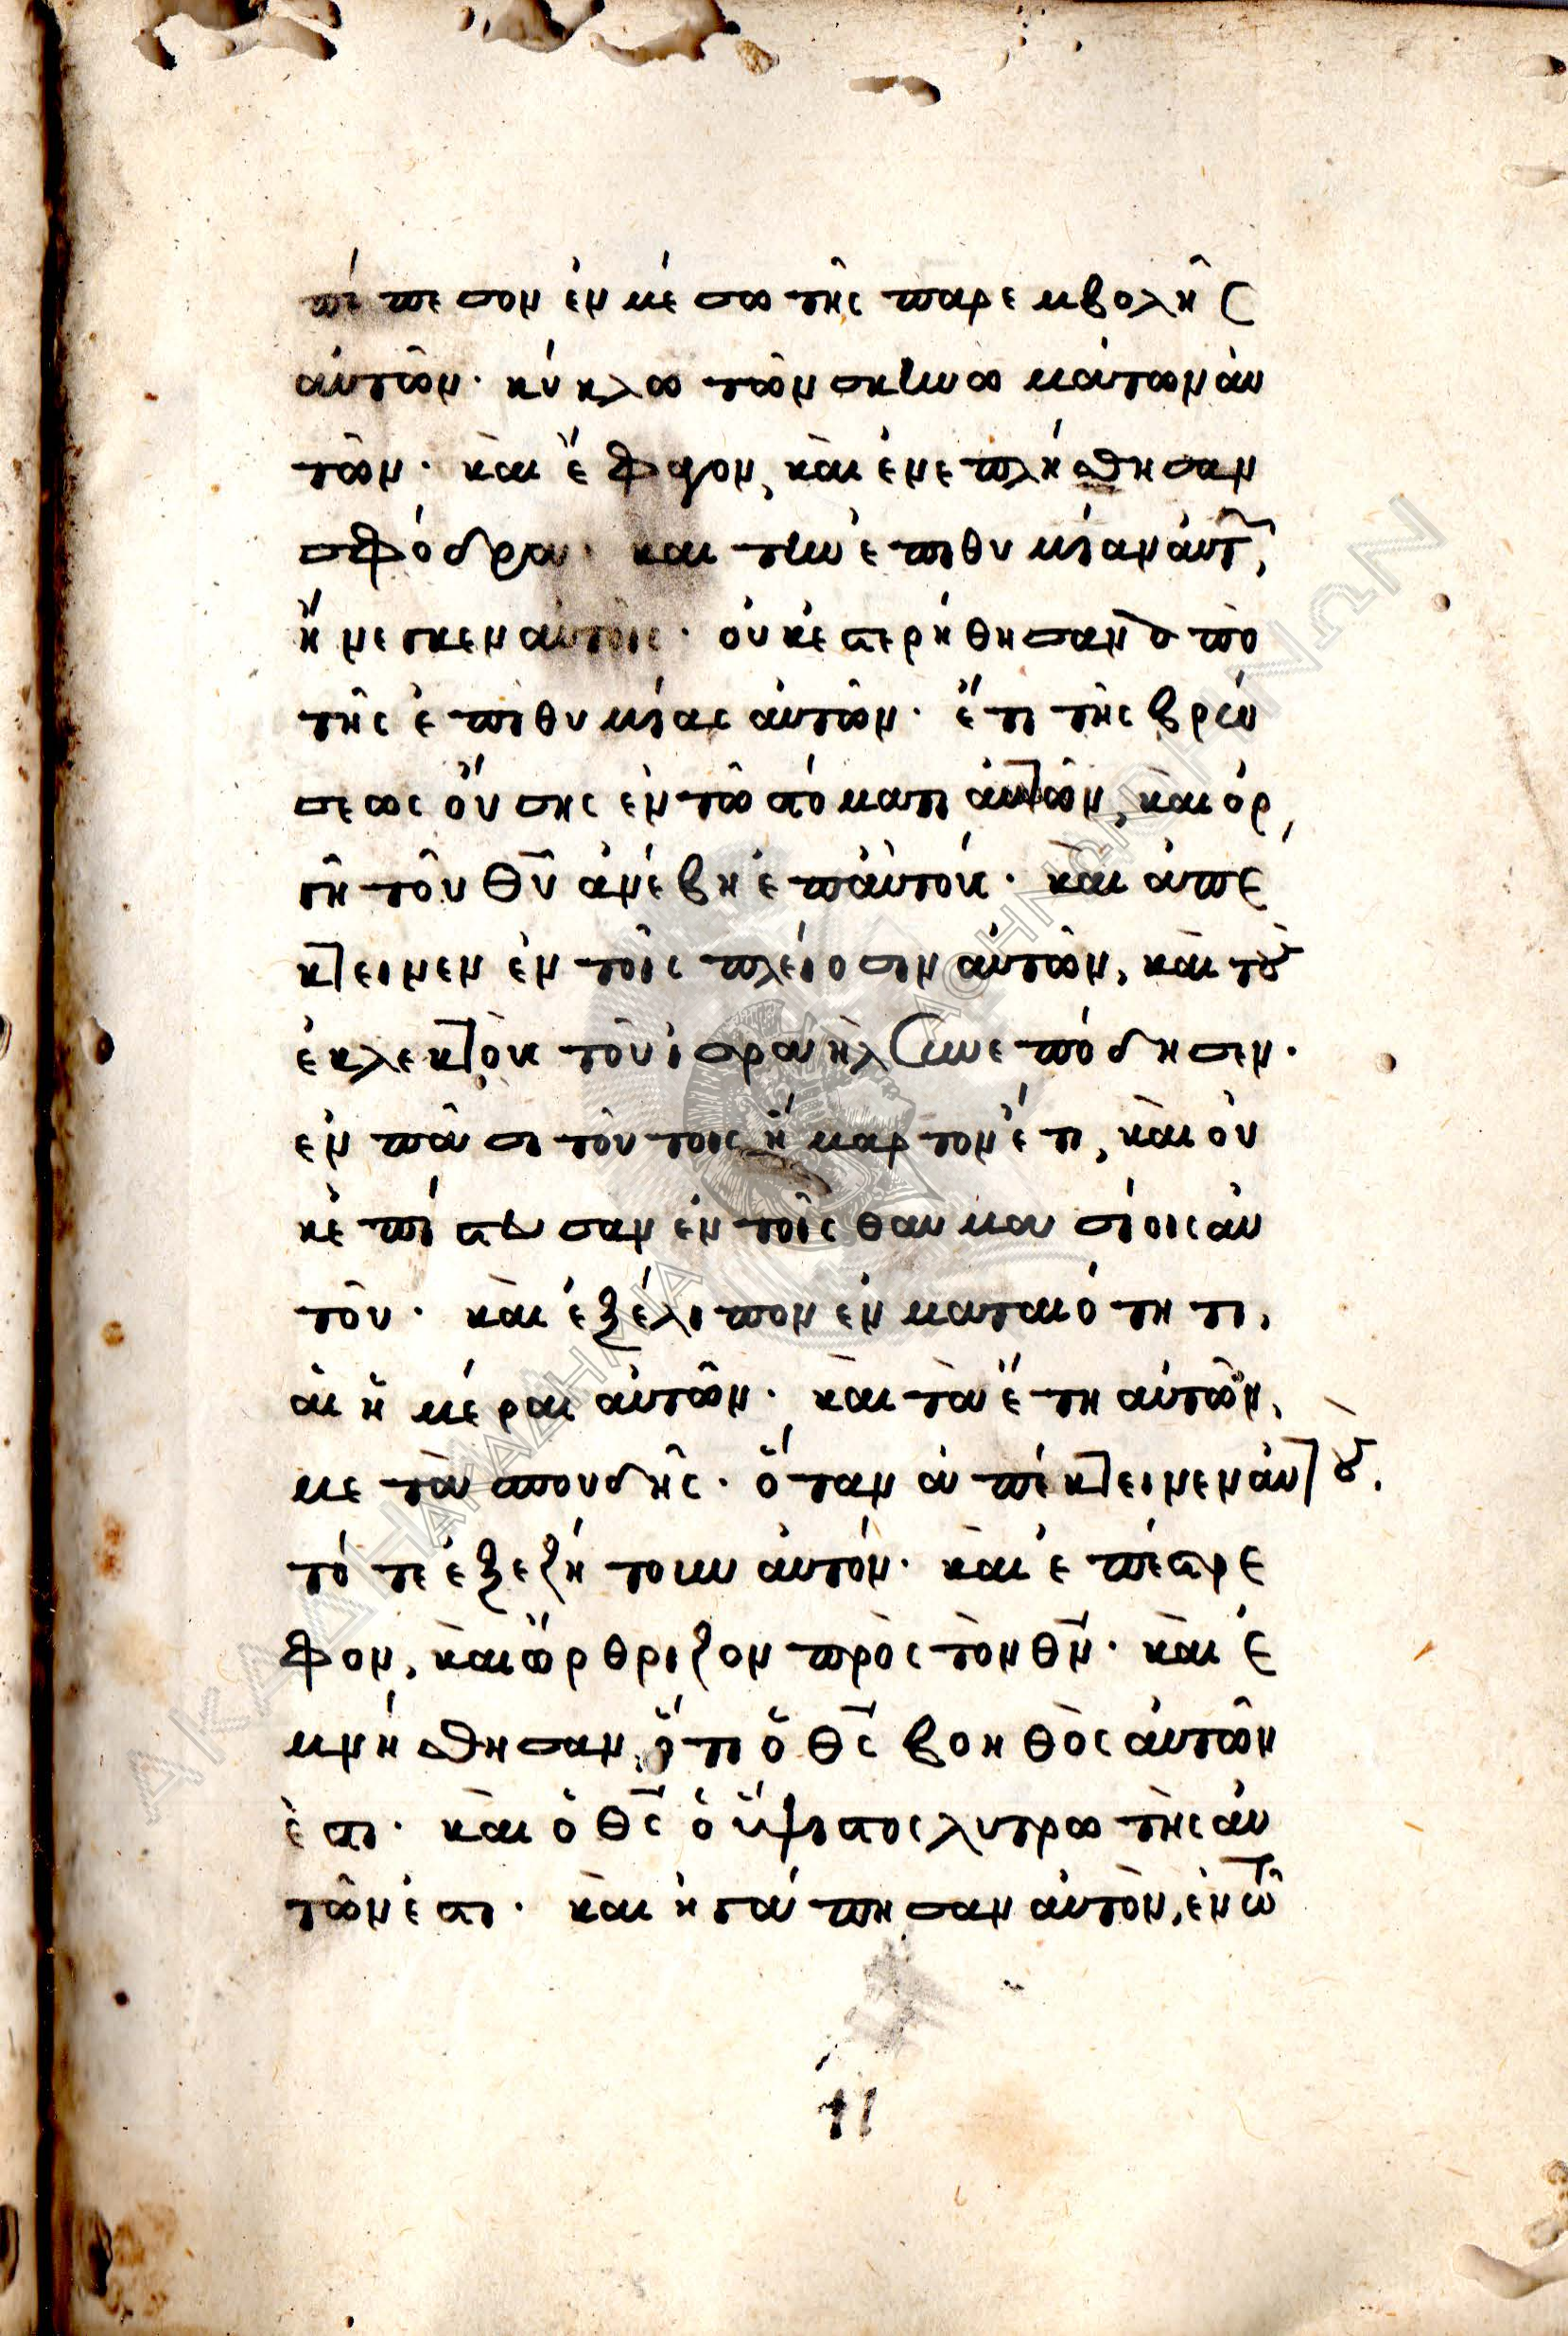 πέπεσον ἐν μέσω τῆς παρεμβολῆς
ἀυτῶν· κύκλω τῶν σκηνωμάτων ἀυ
τῶν· κὰι ἔφαγον, κὰι ἐνεπλήσθησαν
σφόδρα· και την ἐπιθυμίαν ἀυτ,
ἤνεγκεν αυτοῖς· ὀυκ ἐστερήθησαν ἀπὸ
τῆς ἐπιθυμίας ἀυτῶν· ἔτι τῆς βρώ
σεως ὄυσης ἐν τῶ στόματι ἀυτῶν, κὰι ὀρ
γὴ τοῦ θῦ ἀνέβη ἐπ ἀυτούς· κὰι απέ
κτεινεν ἐν τοῖς πλείοσιν ἀυτῶν, κὰι τοὺς
ἐκλεκτοὺς τοῦ ισραὴλ συνεπόδησεν·
ἐν πᾶσι τούτοις ἥμαρτον ἔτι, κὰι ὀυ
κ ἐπίστευσαν ἐν τοῖς θαυμασίοις ἀυ
τοῦ· κὰι ἐξέλιπον ἐν ματαιότητι,
ἁι ἡμέραι ἀυτῶν· κὰι τὰ ἔτη ἀυτῶν,
μετὰ σπουδῆς· ὅταν ἀπέκτεινεν ἀυτοὺς.
τότε ἐξεζήτουν ἀυτόν· κὰι ἐπέστρε
φον, κὰι ὤρθριζον πρὸς τὸν θν· κὰι ἐ
μνήσθησαν, ὅτι ὁ θς βοηθὸς ἀυτῶν
ἐστι· κὰι ὁ θς ὁ ὕψιστος λυτρωτὴς ἀυ
τῶν ἐστι· κὰι ἠγάπησαν ἀυτὸν, ἐν τῶ
11
ΑΚΑΔΗΜΙΑ ΑΘΗΝΩΝ
ΑΚΑΔΗΜΙΑ ΑΘΗΝΩΝ